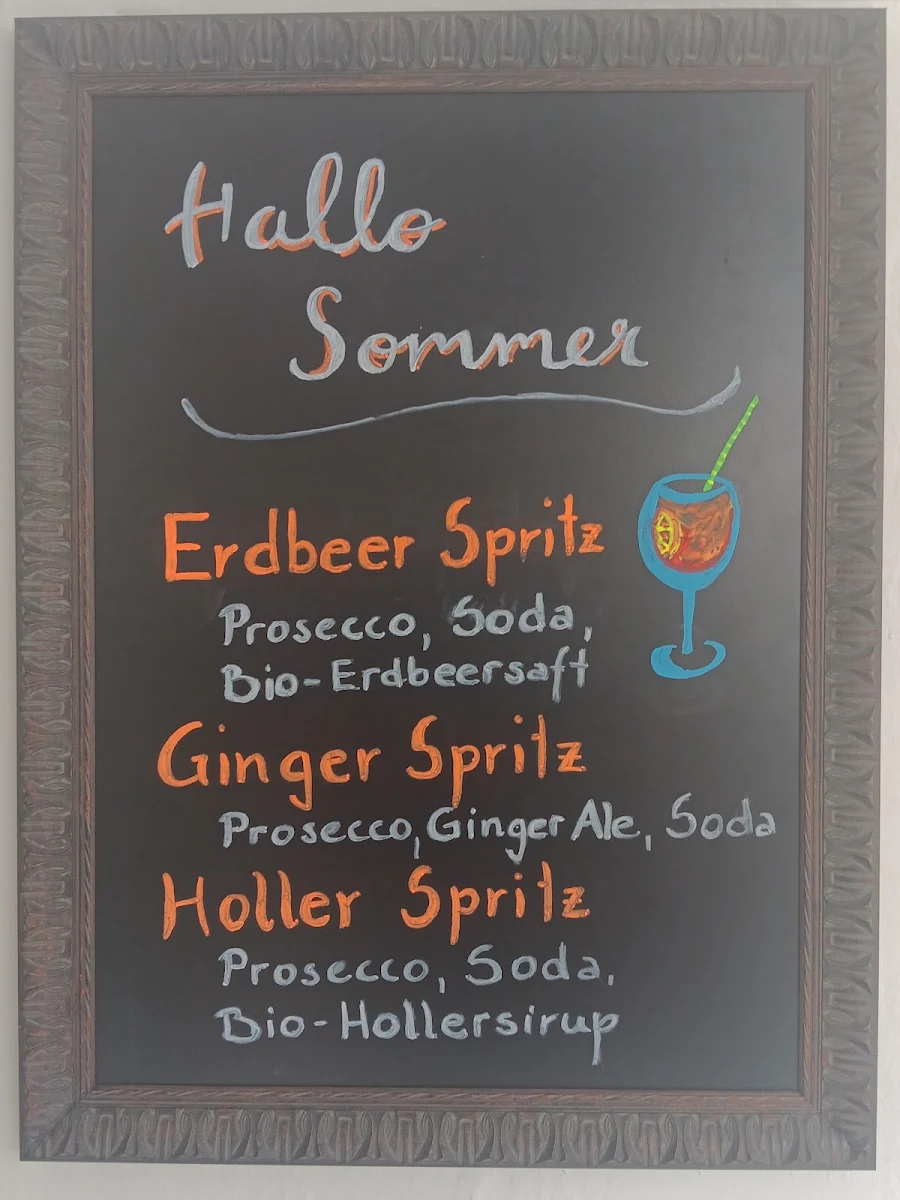 Hallo
Sommer
Erdbeer Spritz
Prosecco, Soda,
Bio-Erdbeersaft
Ginger Spritz
Prosecco, Ginger Ale, Soda
Holler Spritz
Prosecco, Soda,
Bio-Hollersirup